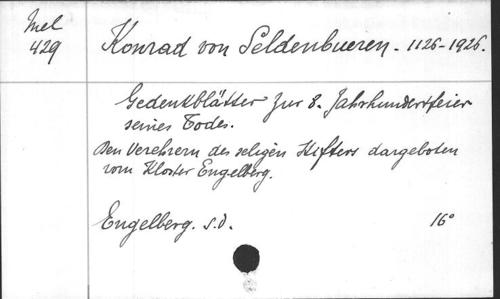 Mel
429
Konrad von Seldenbueren. 1126-1926.
Gedenkblätter zur 8. Jahrhundertfeier
seines Todes.
Den Verehrern des seligen Stifters dargeboten
vom Kloster Engelberg.
Engelberg. s.d. 16°